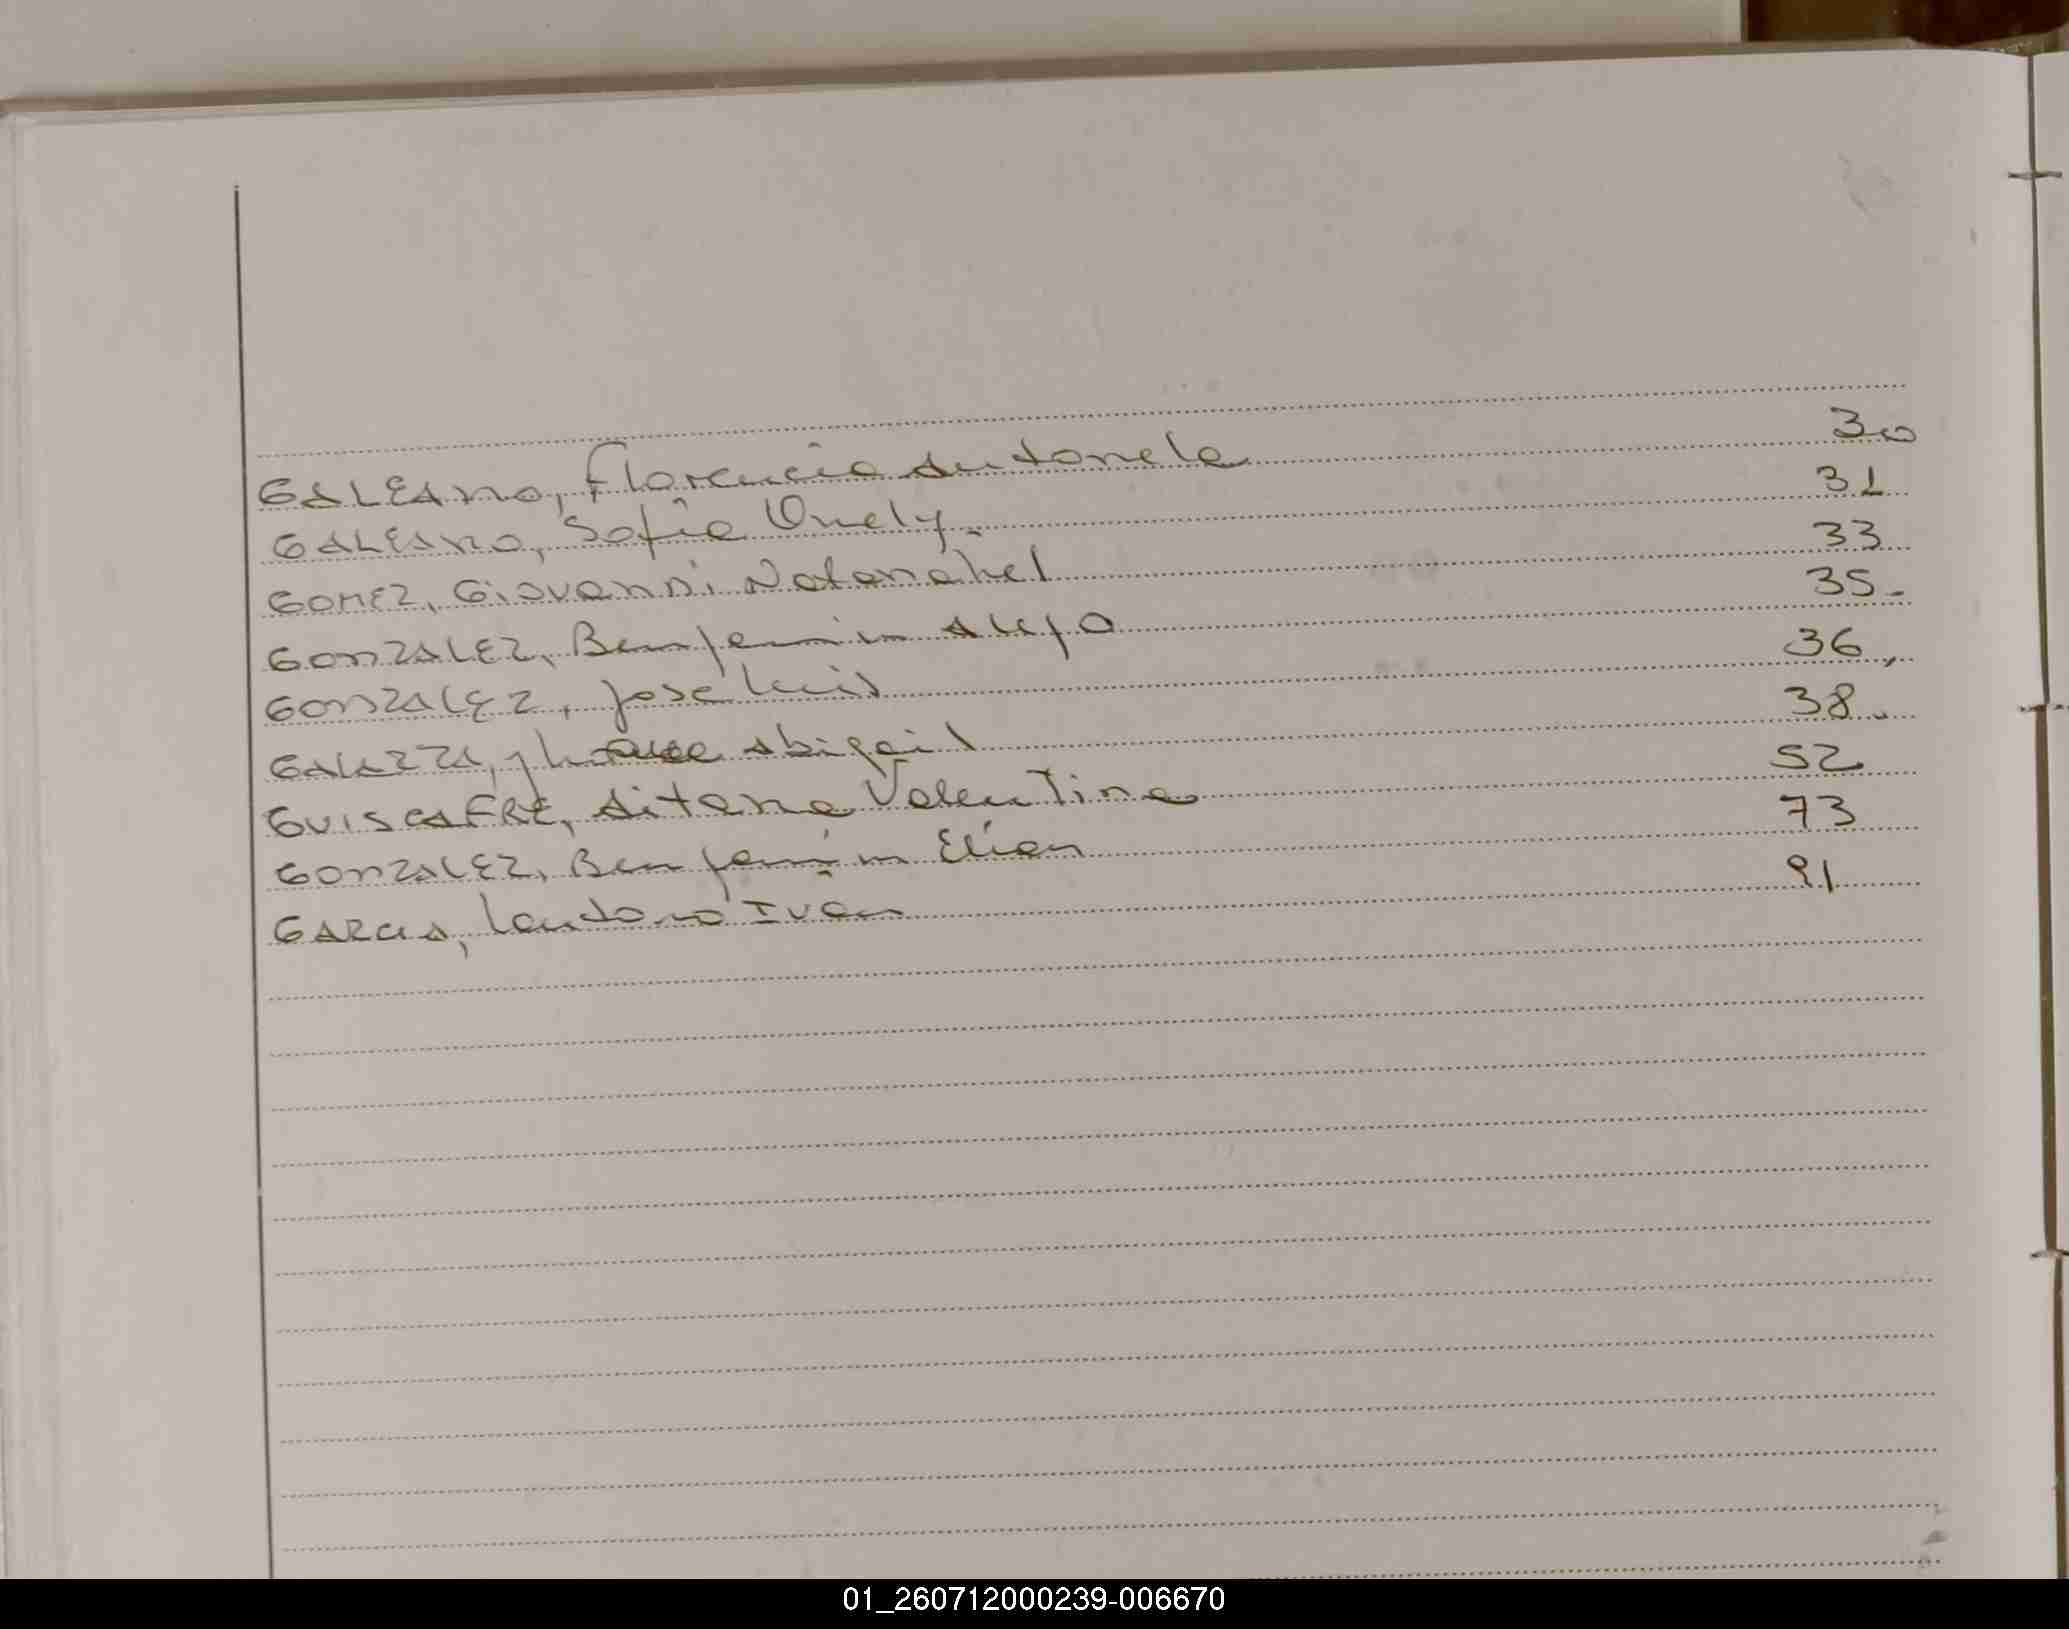 GALEANO, Florencia Antonela 30
GALEANO, Sofia Onely. 31
GOMEZ, Giovanni Natanahel 33
GONZALEZ, Benjamin Alejo 35.
GONZALEZ, Jose Luis 36.
GALAZZA, Abigail 38.
GUISCAFRE, Aitana Valentina 52
GONZALEZ, Benjamin Elian 73
GARCIA, Lautaro Ivan 91
01_260712000239-006670